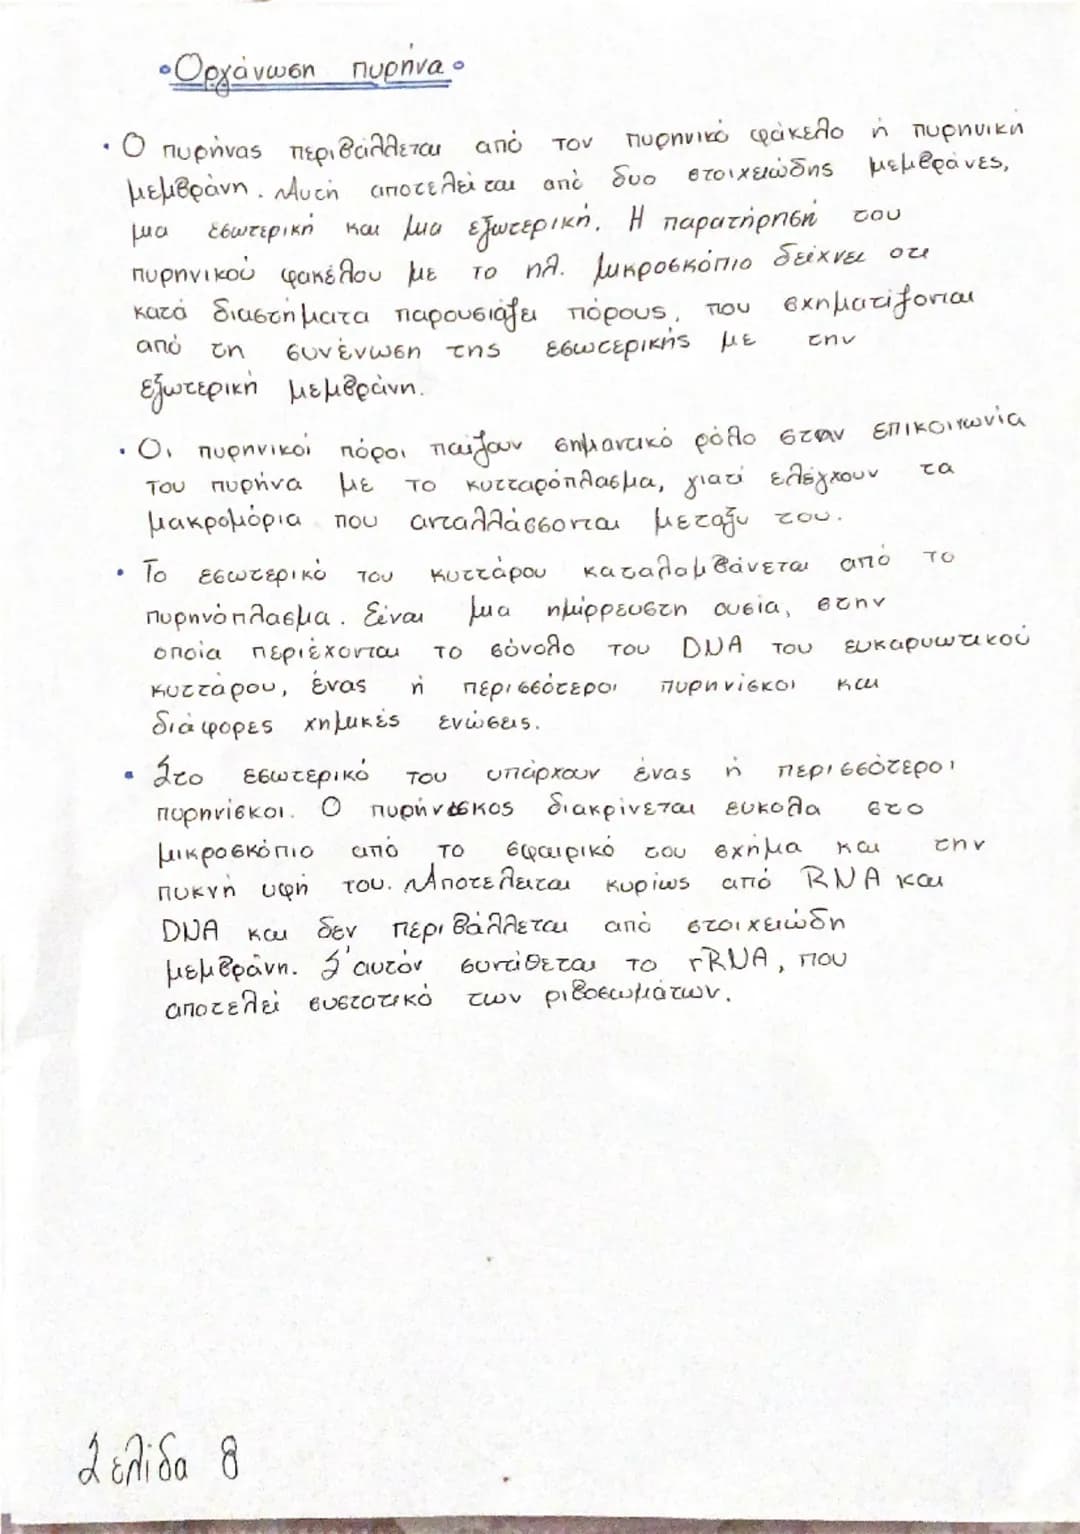 •Οργάνωση πυρήνα•
• Ο πυρήνας περιβάλλεται από τον πυρηνικό φάκελο ή πυρηνική
μεμβράνη. Αυτή αποτελείται από δυο στοιχειώδης μεμβράνες,
μια εσωτερική και μια εξωτερική. Η παρατήρηση του
πυρηνικού φακέλου με το ηλ. μικροσκόπιο δείχνει οτι
κατά διαστήματα παρουσιάζει πόρους, που σχηματίζονται
από τη συνένωση της εσωτερικής με την
εξωτερική μεμβράνη.
• Οι πυρηνικοί πόροι παίζουν σημαντικό ρόλο στην επικοινωνία
του πυρήνα με το κυτταρόπλασμα, γιατί ελέγχουν τα
μακρομόρια που ανταλλάσσονται μεταξυ του.
• Το εσωτερικό του κυττάρου καταλαμβάνεται από το
πυρηνόπλασμα. Είναι μια ημίρρευστη ουσία, στην
οποία περιέχονται το σύνολο του DNA του ευκαρυωτικού
κυττάρου, ένας ή περισσότεροι πυρηνίσκοι και
διάφορες χημικές ενώσεις.
• Στο εσωτερικό του υπάρχουν ένας ή περισσότεροι
πυρηνίσκοι. Ο πυρήνισκος διακρίνεται ευκολα στο
μικροσκόπιο από το σφαιρικό του σχήμα και την
πυκνή υφή του. Αποτελειται κυρίως από RNA και
DNA και δεν περιβάλλεται από στοιχειώδη
μεμβράνη. Σ'αυτόν συντίθεται το rRNA, που
αποτελεί συστατικό των ριβοσωμάτων.
Σελίδα 8